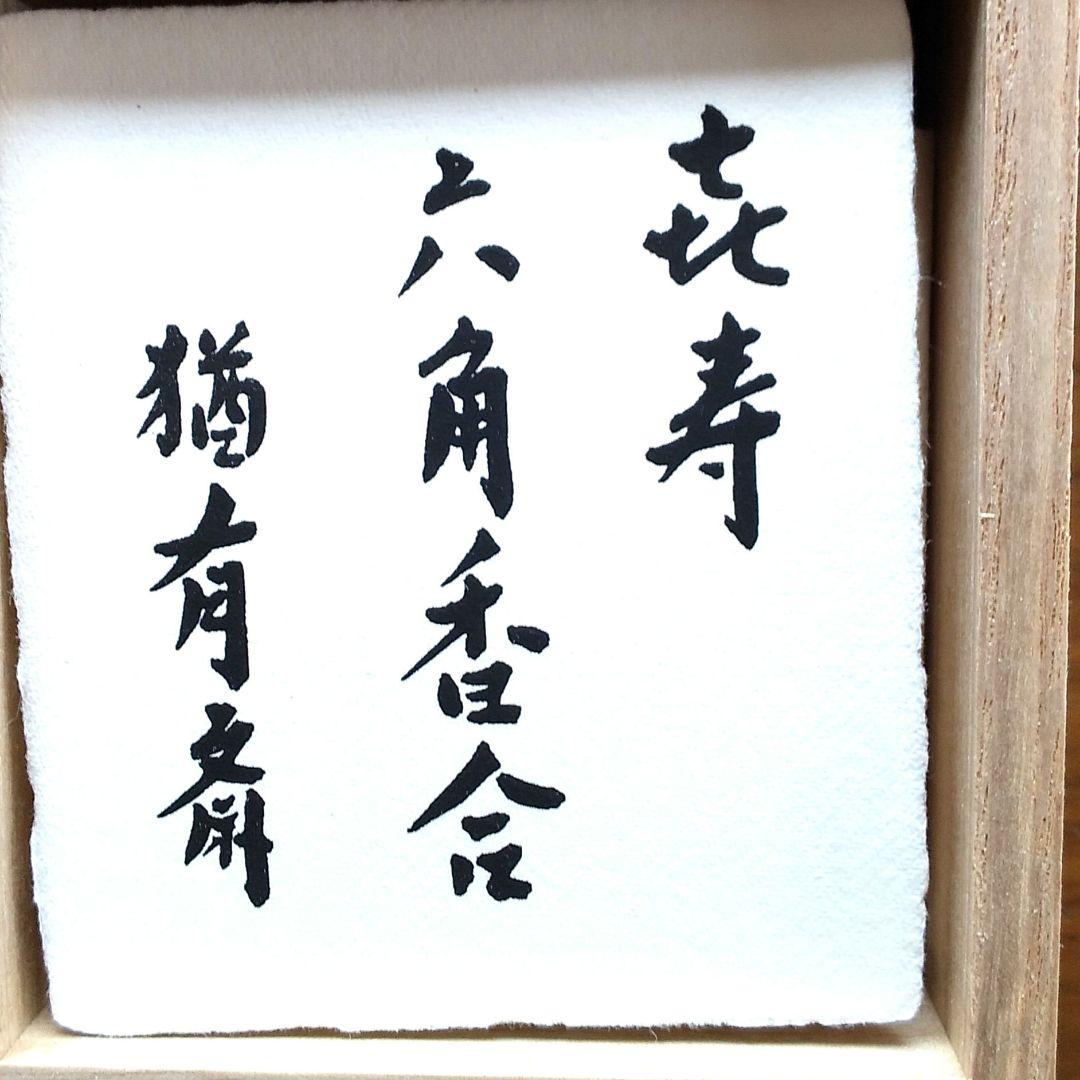 㐂寿
六角香合
猶有斎